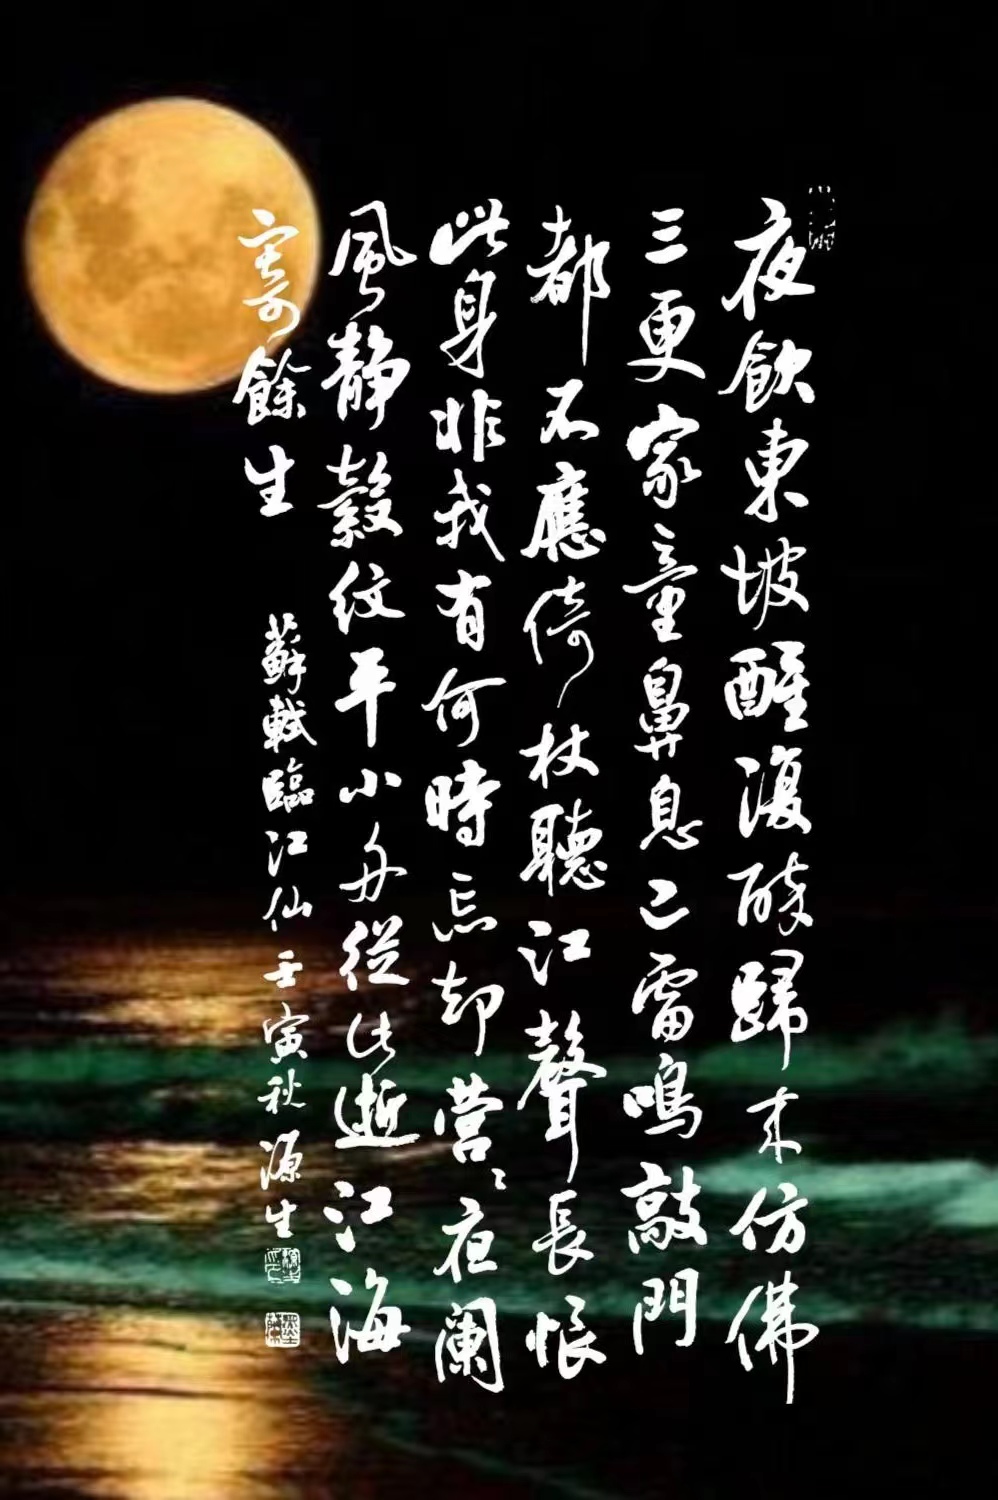 夜飲東坡醒復醉歸来仿佛
三更家童鼻息已雷鳴敲門
都不應倚杖聽江聲長恨
此身非我有何時忘却营〻夜阑
風静縠纹平小舟從此逝江海
寄餘生
蘇軾臨江仙壬寅秋源生